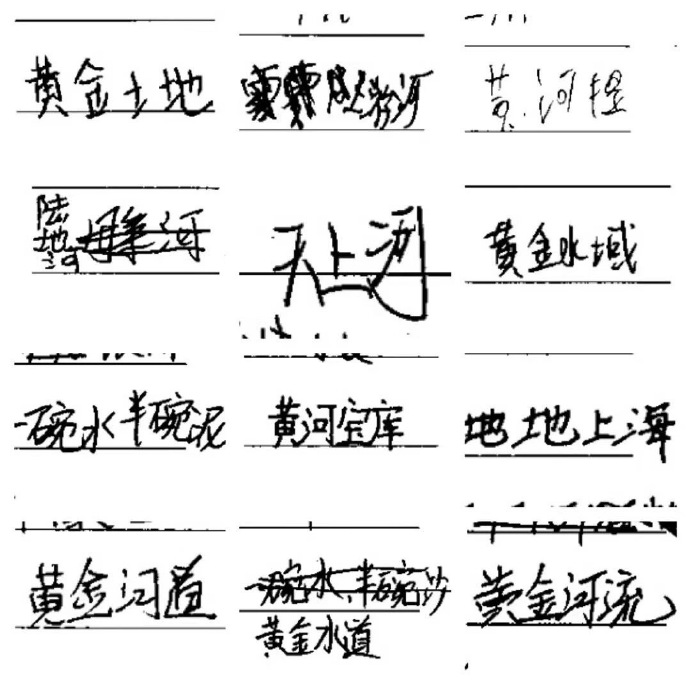 黄金土地
黄河
陆地河
天上河
黄金水域
一碗水半碗泥
黄河宝库
地地上海
黄金河道
一碗水半碗沙
黄金水道
黄金河流